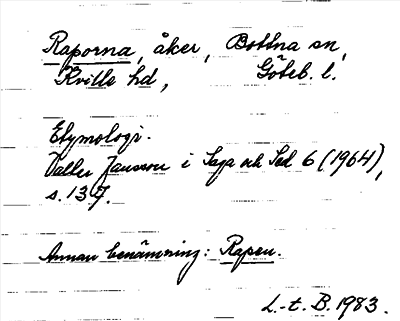 Raporna, åker, Bottna sn,
Kville hd, Göteb. l.
Etymologi.
Valter Jansson i Saga och Sed 6 (1964),
s. 137.
Annan benämning: Rapen.
L.-t. B. 1983.